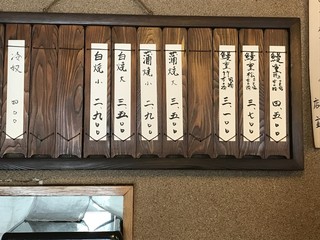 鰻重 四、五〇〇
鰻重 三、七〇〇
鰻重 三、一〇〇
蒲焼 大 三、五〇〇
蒲焼 小 二、九〇〇
白焼 大 三、五〇〇
白焼 小 二、九〇〇
冷奴 四〇〇